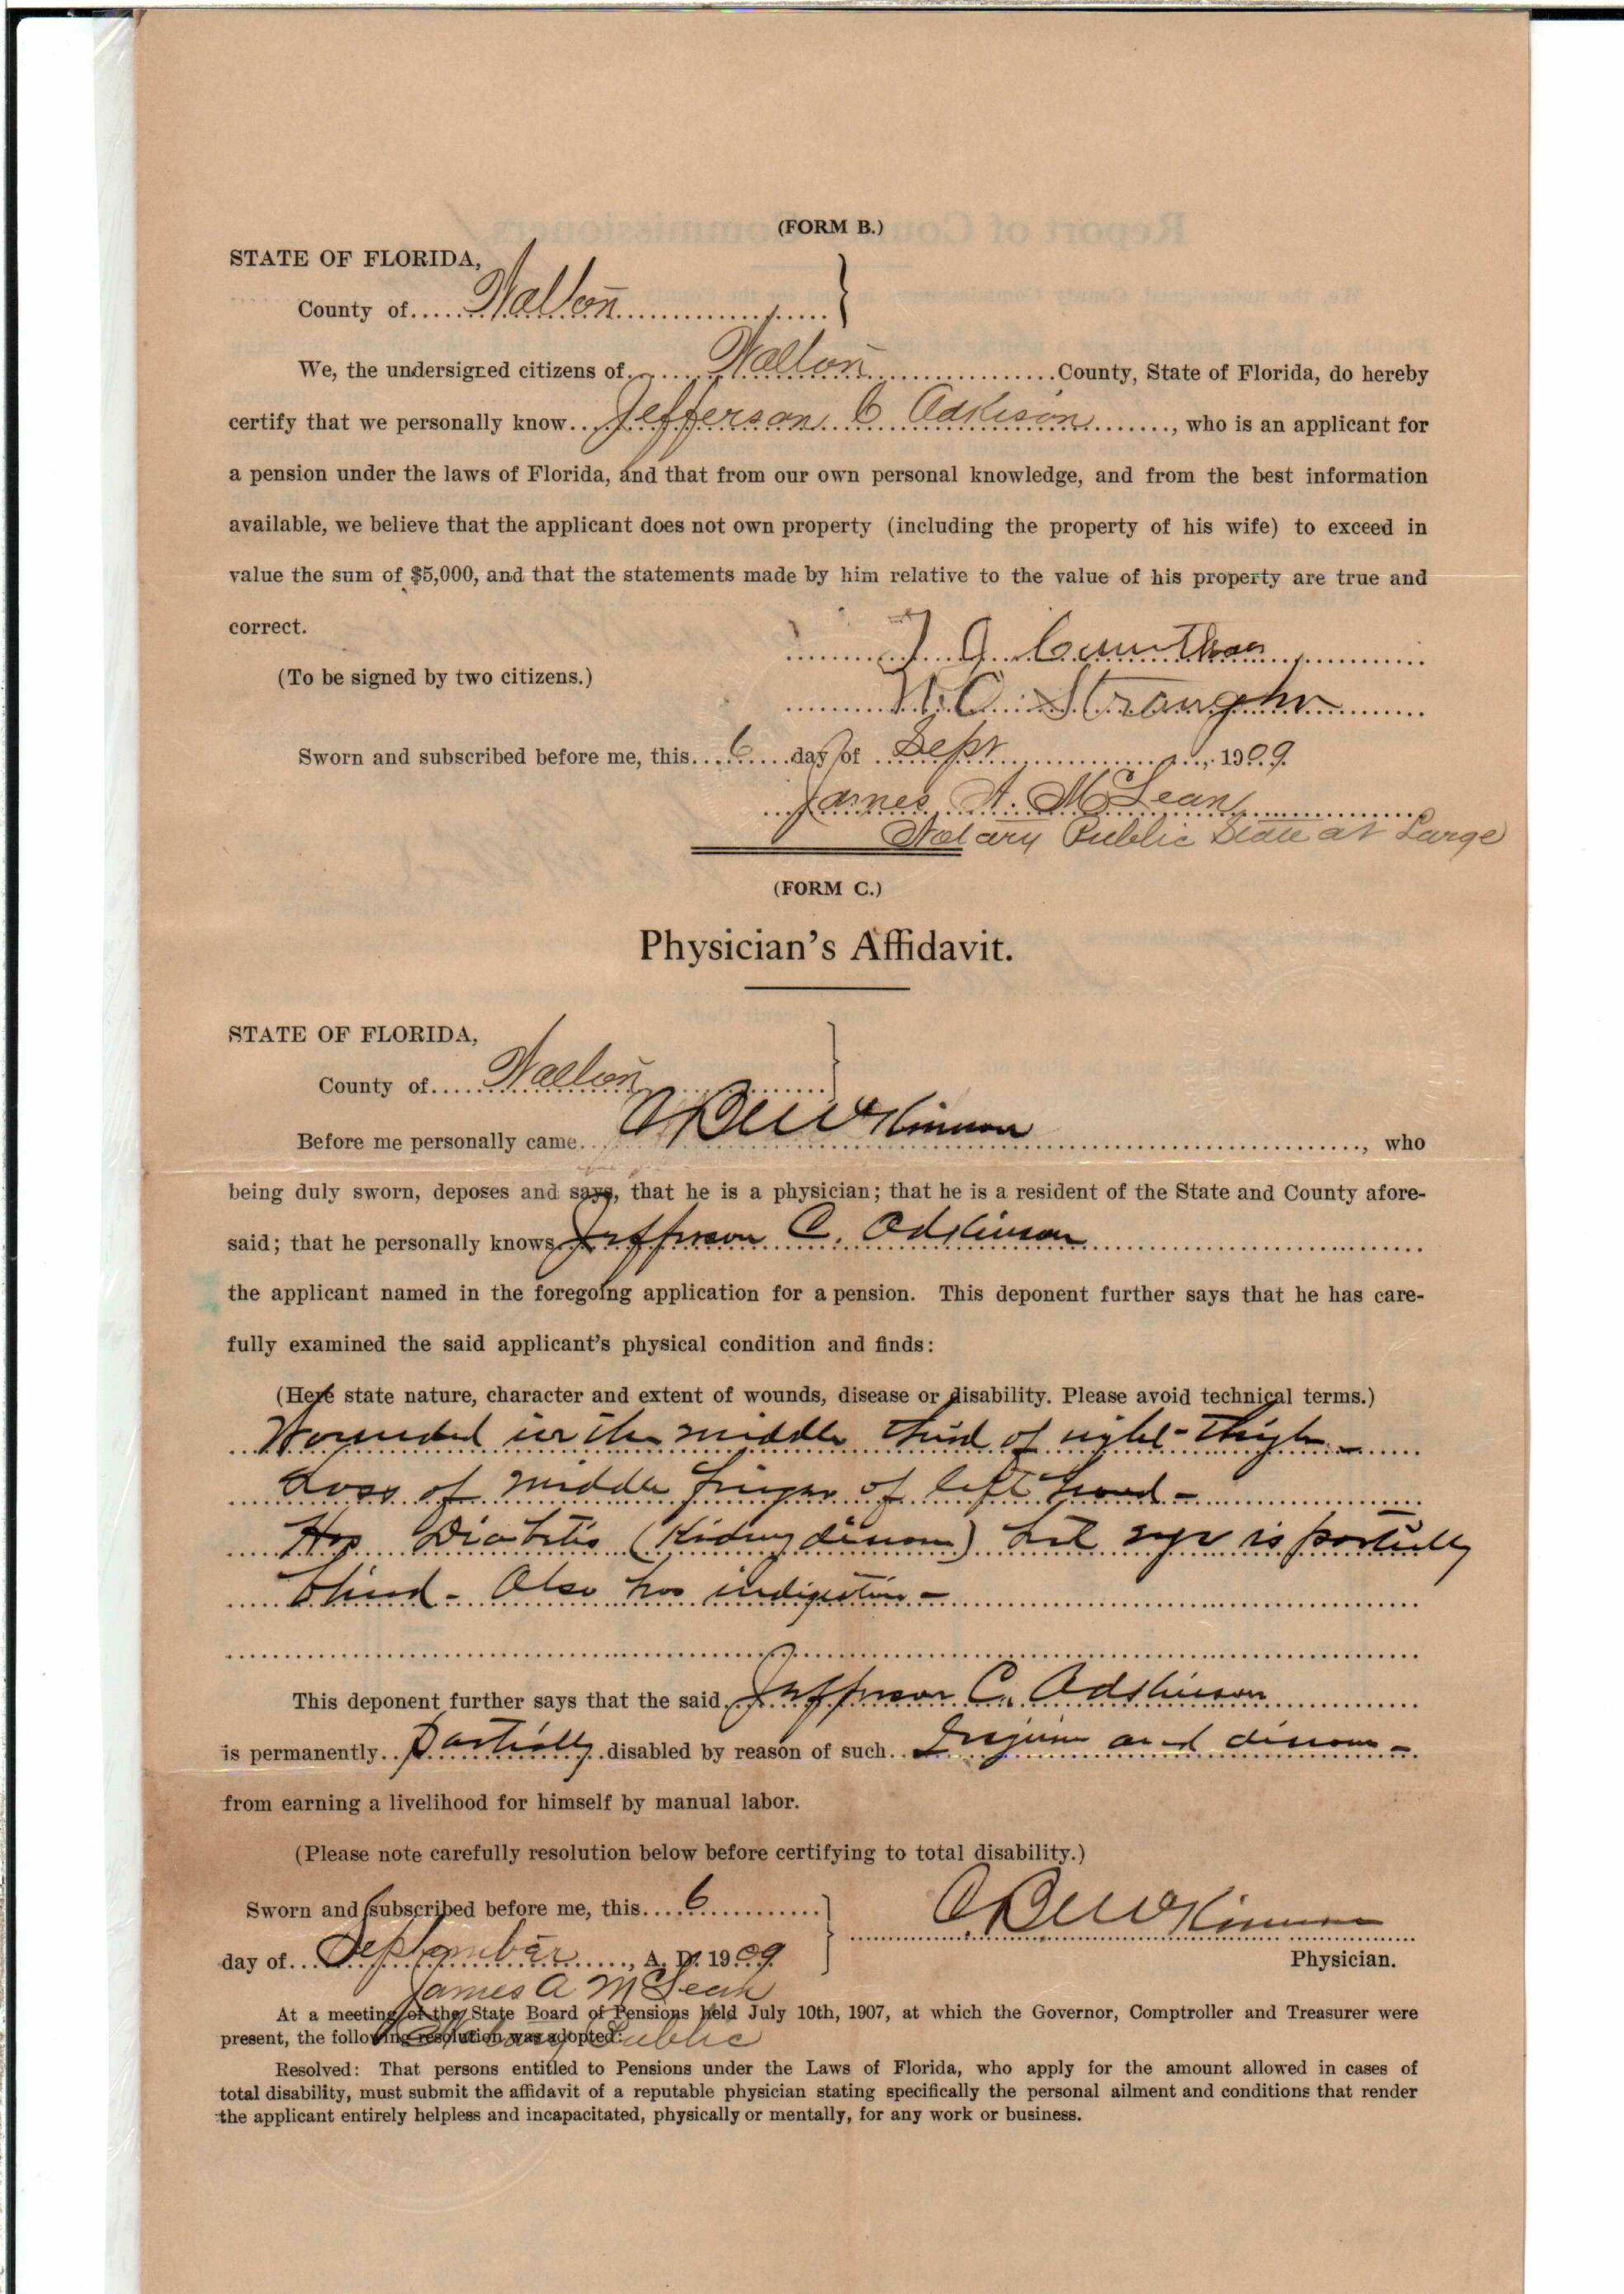 (FORM B.)
STATE OF FLORIDA,
County of Walton
We, the undersigned citizens of Walton County, State of Florida, do hereby
certify that we personally know Jefferson C Adkison, who is an applicant for
a pension under the laws of Florida, and that from our own personal knowledge, and from the best information
available, we believe that the applicant does not own property (including the property of his wife) to exceed in
value the sum of $5,000, and that the statements made by him relative to the value of his property are true and
correct.
J. J.
(To be signed by two citizens.)
Straughn
Sworn and subscribed before me, this 6 day of Sept, 1909.
James A. McLean
Notary Public State at Large
(FORM C.)
Physician's Affidavit.
STATE OF FLORIDA,
County of Walton
Before me personally came McKinnon, who
being duly sworn, deposes and says, that he is a physician; that he is a resident of the State and County afore-
said; that he personally knows Jefferson C. Adkinson
the applicant named in the foregoing application for a pension. This deponent further says that he has care-
fully examined the said applicant's physical condition and finds:
(Here state nature, character and extent of wounds, disease or disability. Please avoid technical terms.)
Wounded in the middle third of right thigh -
Loss of middle finger of left hand -
Has Diabetis (Kidney disease) eye is partially
blind - Also has indigestion -
This deponent further says that the said Jefferson C. Adkinson
is permanently Partially disabled by reason of such Injuries and disease -
from earning a livelihood for himself by manual labor.
(Please note carefully resolution below before certifying to total disability.)
Sworn and subscribed before me, this 6
McKinnon
day of September, A. D. 1909.
Physician.
James A McLean
At a meeting of the State Board of Pensions held July 10th, 1907, at which the Governor, Comptroller and Treasurer were
present, the following resolution was adopted:
Notary Public
Resolved: That persons entitled to Pensions under the Laws of Florida, who apply for the amount allowed in cases of
total disability, must submit the affidavit of a reputable physician stating specifically the personal ailment and conditions that render
the applicant entirely helpless and incapacitated, physically or mentally, for any work or business.